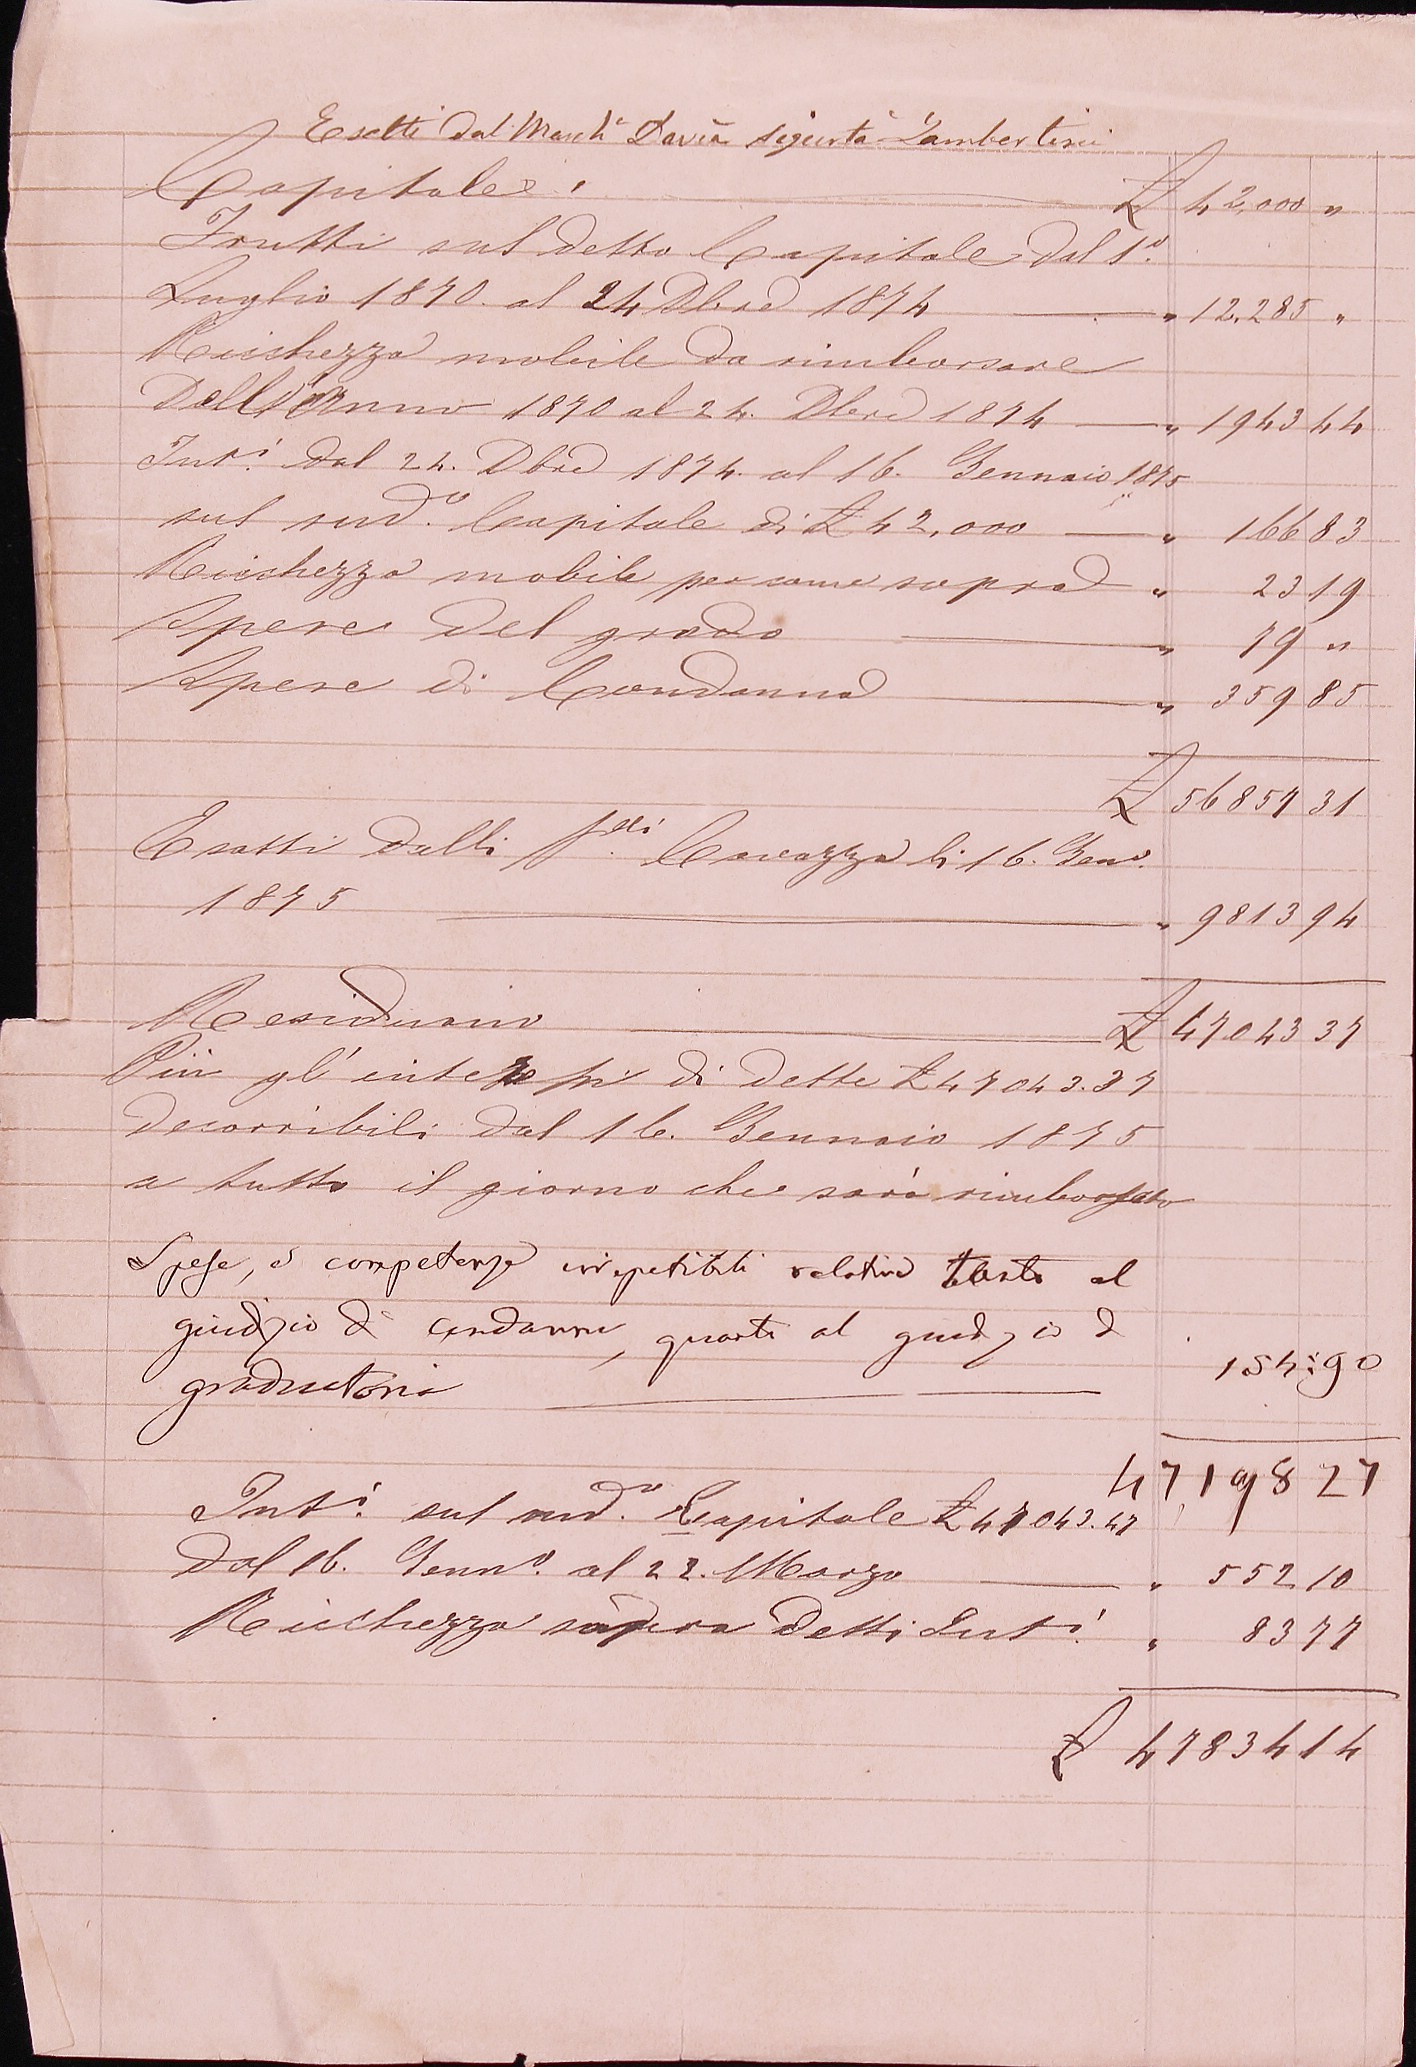 Esatti dal March.e Davia sigurtà Lambertini
Capitale: £ 42,000 "
Frutti sul detto Capitale dal 1.o
Luglio 1870. al 24 Dbre 1874 " 12,285 "
Ricchezza mobile da rimborsare
Dall'Anno 1870 al 24. Dbre 1874 " 1943 44
Int.i dal 24. Dbre 1874. al 16. Gennaio 1875
sul sud.o Capitale di £ 42,000 " 166 83
Ricchezza mobile per come sopra " 23 19
Spese del grado " 79 "
Spese di Condanna " 359 85
£ 56857 31
Esatti dalli f.lli Cavazza li 16. Gen.o
1875 " 9813 94
Residuano £ 47043 37
Più gl'interessi di dette £ 47043.37
decorribili dal 16. Gennaio 1875
a tutto il giorno che sarà rimborsato
Spese, e competenze irripetibili relative tanto al
giudizio di condanna, quanto al giudizio di
graduatoria 154:90
47,198 27
Int.i sul sud.o Capitale £ 47043.47
dal 16. Genn.o al 22. Marzo " 552 10
Ricchezza sopra detti Int.i " 83 77
£ 47834 14